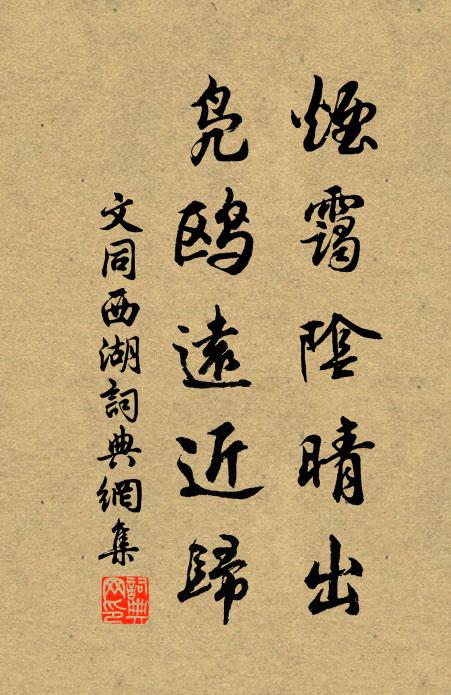 煙靄陰晴出
鳧鷗遠近歸
文同西湖詞典網集
詞典網印